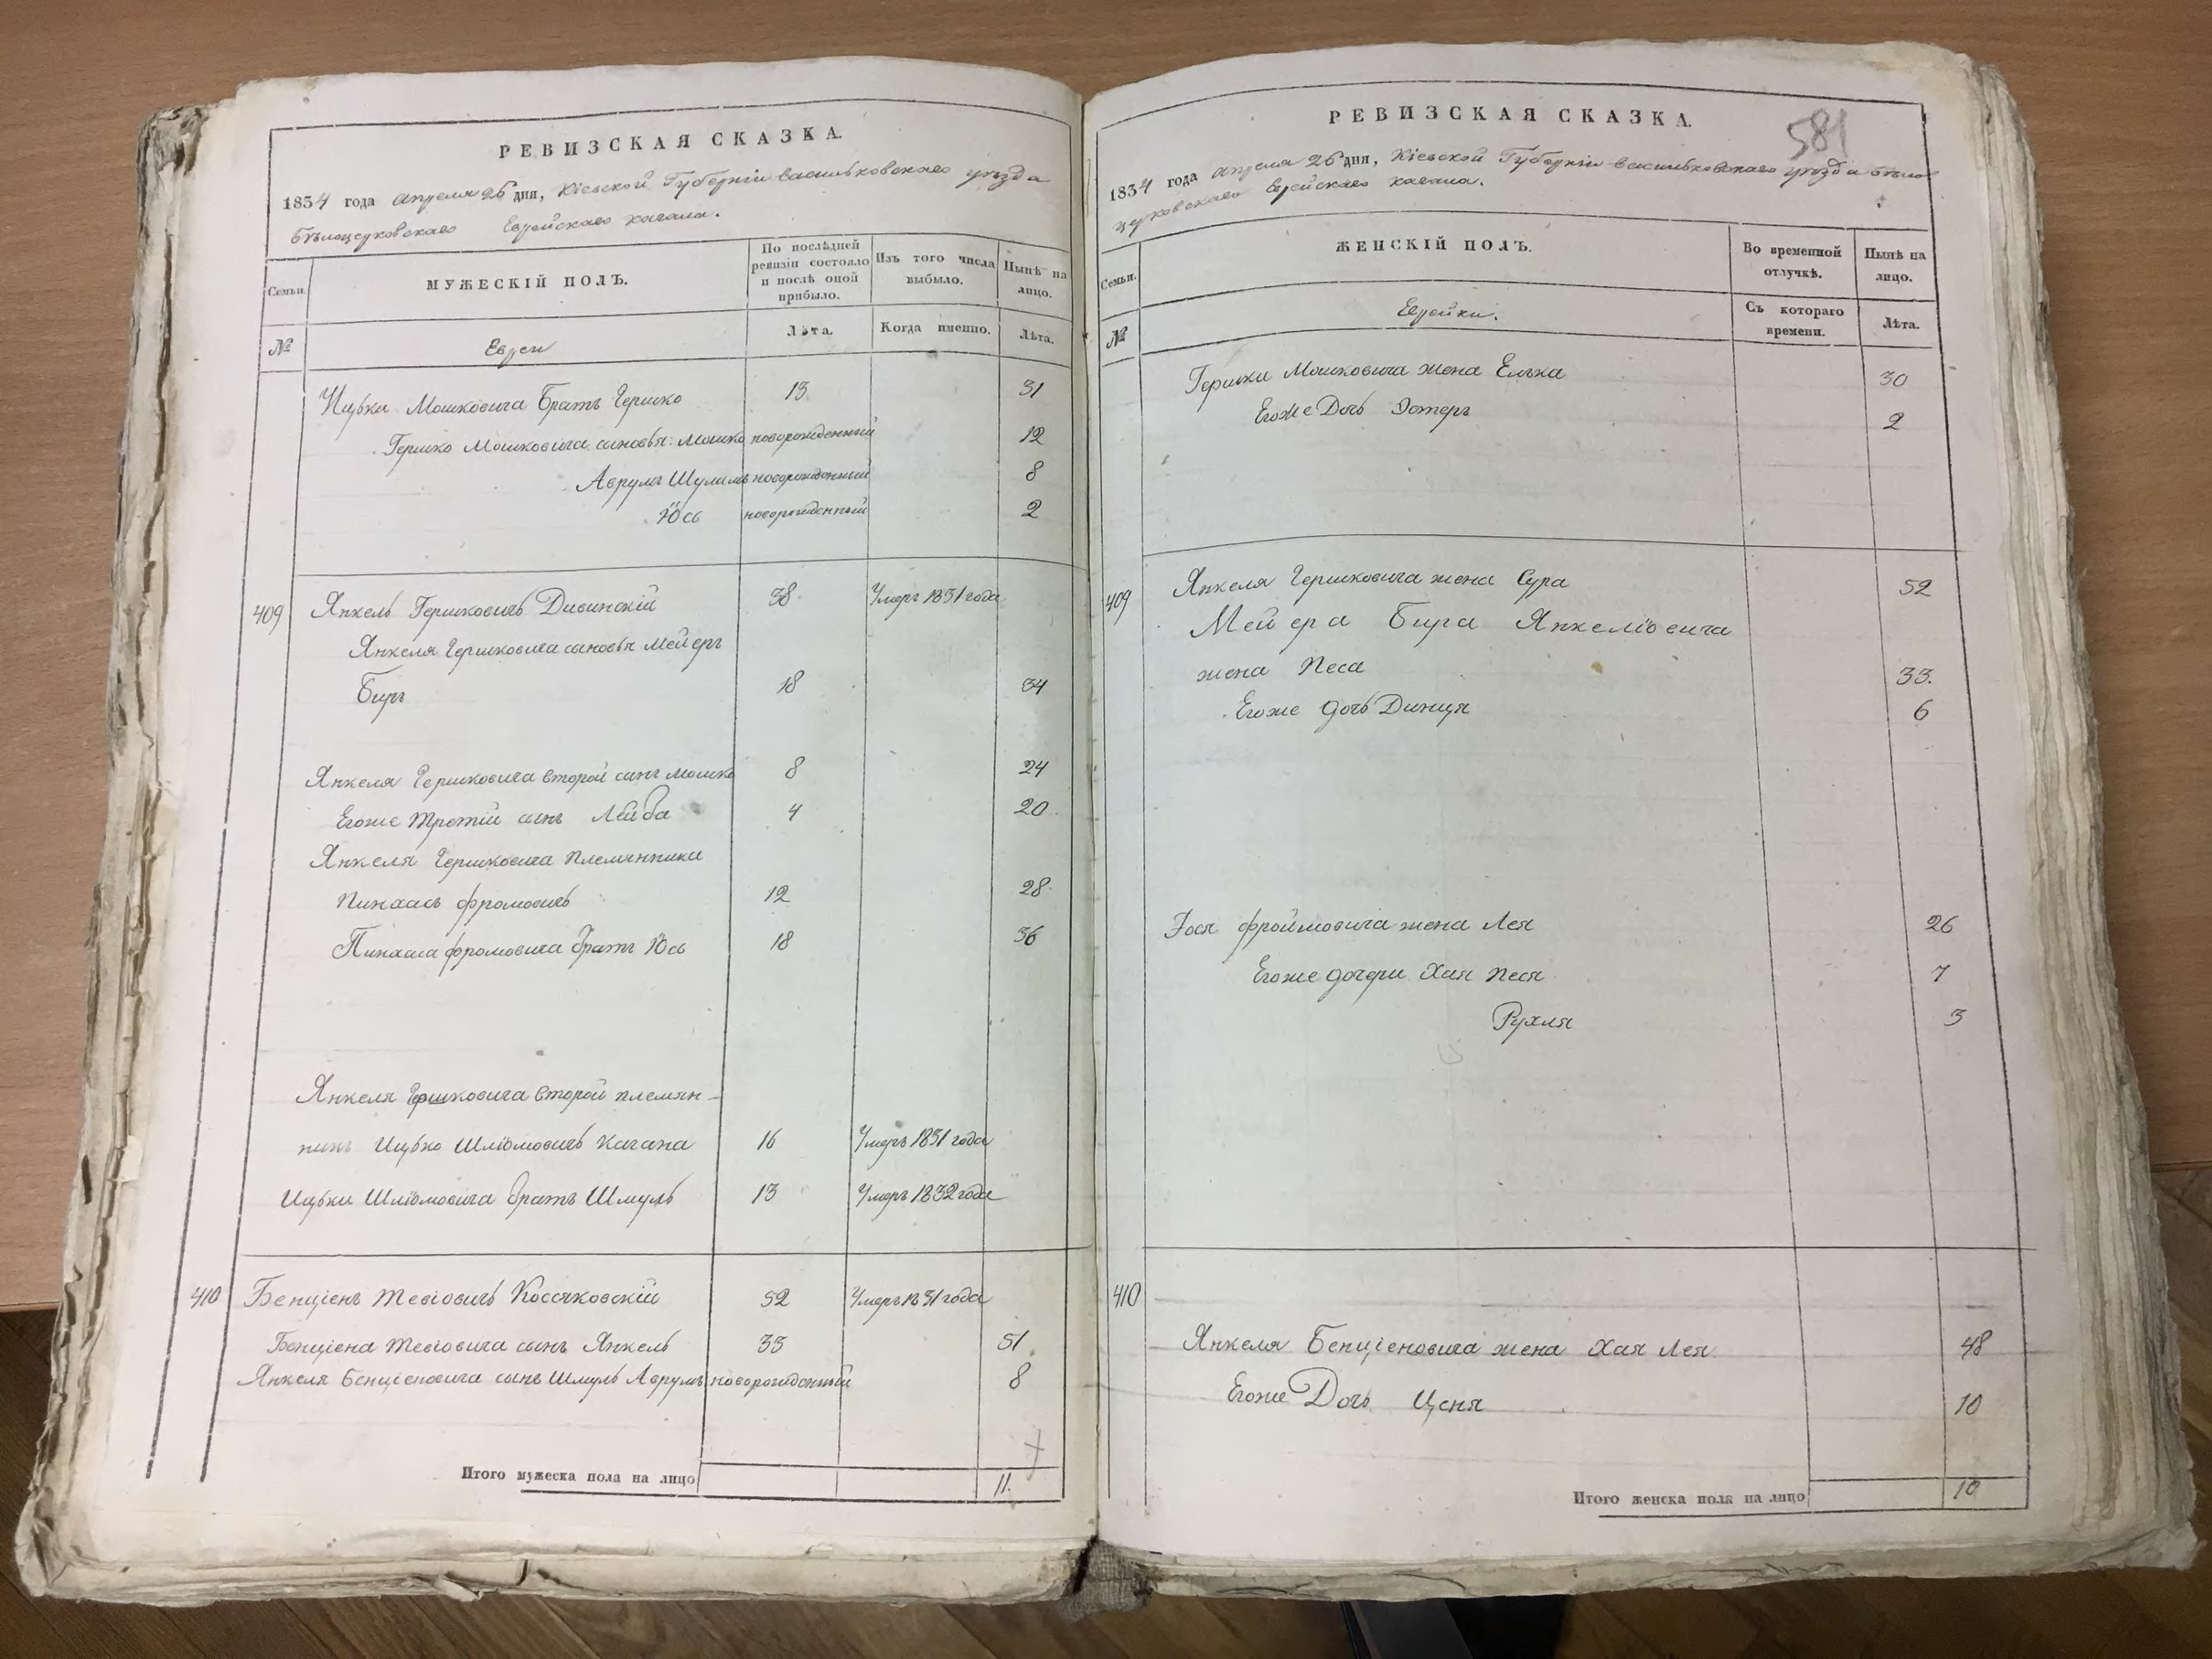 РЕВИЗСКАЯ СКАЗКА.
1834 года апреля 26 дня, Кіевской Губерніи васильковскаго уѣзда
бѣлоцерковскаго Еврейскаго кагала.
Семьи.
МУЖЕСКІЙ ПОЛЪ.
По послѣдней ревизіи состояло и послѣ оной прибыло.
Изъ того числа выбыло.
Нынѣ на лицо.
№
Евреи
Лѣта.
Когда именно.
Лѣта.
Ицьки Мошковича братъ Гершко 13 31
Гершко Мошковича сыновья: Мошко новорожденный 12
Аврумъ Шулимъ новорожденный 8
Юсь новорожденный 2
409 Янкель Гершковичъ Дивинскій 38 Умеръ 1831 года
Янкеля Гершковича сыновья Мейеръ
Биръ 18 34
Янкеля Гершковича второй сынъ Мошко 8 24
Егоже третій сынъ Лейба 4 20
Янкеля Гершковича племянники
Пинхасъ фромовичъ 12 28
Пинхаса фромовича братъ Юсь 18 36
Янкеля Гершковича второй племян-
никъ Ицько Шліомовичъ Кагана 16 Умеръ 1831 года
Ицьки Шліомовича братъ Шмуль 13 Умеръ 1832 года
410 Бенціенъ Тевіовичъ Коссяковскій 52 Умеръ 1831 года
Бенціена Тевіовича сынъ Янкель 33 51
Янкеля Бенціеновича сынъ Шмуль Аврумъ новорожденный 8
Итого мужеска пола на лицо 11.
РЕВИЗСКАЯ СКАЗКА.
581
1834 года апреля 26 дня, Кіевской Губерніи васильковскаго уѣзда бѣло
церковскаго Еврейскаго кагала.
Семьи.
ЖЕНСКІЙ ПОЛЪ.
Во временной отлучкѣ.
Нынѣ на лицо.
№
Еврейки.
Съ котораго времени.
Лѣта.
Гершки Мошковича жена Елька 30
Егоже Дочь Эстеръ 2
409 Янкеля Гершковича жена Сура 52
Мейера Бира Янкеліовича
жена Песа 33.
Егоже дочь Динця 6
Юся фроймовича жена Лея 26
Егоже дочери Хая Песя 7
Рухля 3
410
Янкеля Бенціеновича жена Хая Лея 48
Егоже Дочь Ценя 10
Итого женска пола на лицо 10